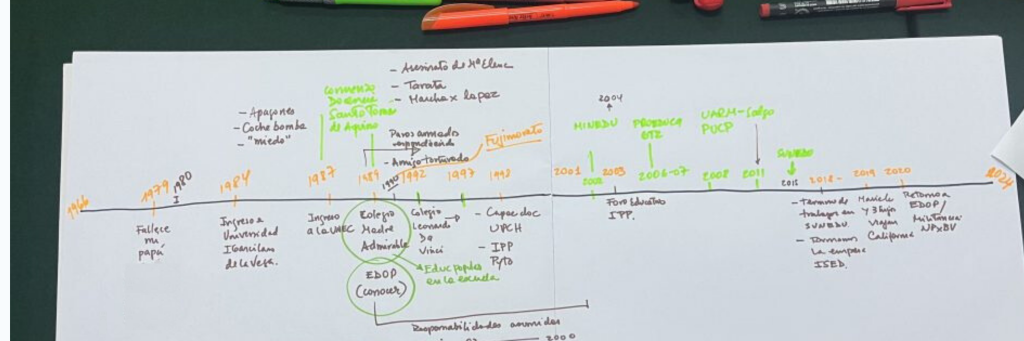 - Asesinato de Mª Elena
- Tarata
- Marcha x la paz
Comienzo
Docencia
Santo Tomas
de Aquino
- Apagones
- Coche bomba
- "miedo"
Paros armados
- Amigo torturado
Fujimorato
2004
MINEDU
PROEDUCA
GTZ
UARM-
PUCP
SUNEDU
1966
1979
1980
I
1984
1987
1989
1990
1992
1997
1998
2001
2002
2003
2006-07
2008
2011
2015
2018-
2019
2020
2024
Fallece
mi
papá
Ingreso a
Universidad
I Garcilaso
de la Vega.
Ingreso
a la
Colegio
Madre
Admirable
EDOP
(conocer)
Colegio
Leonardo
Da
Vinci
Educ popular
en la escuela
- Capac doc
UPCH
- IPP
Foro Educativo
IPP.
- Termino de
trabajar en
SUNEDU.
- Formamos
la empresa
ISED.
Marcielo
y 3 hijos
viajan
California
Retorno a
EDOP/
Militancia
Responsabilidades asumidas
2000